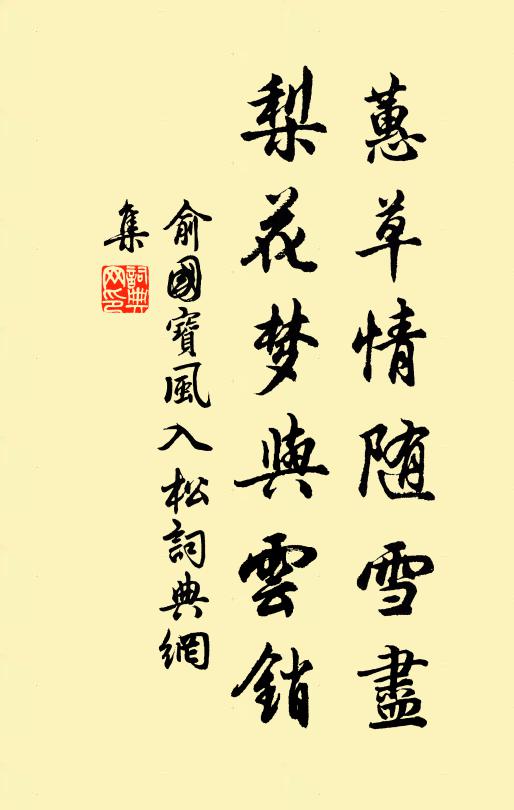 蕙草情随雪盡
梨花梦與雲銷
俞國寶風入松詞典網
集
詞典
网印